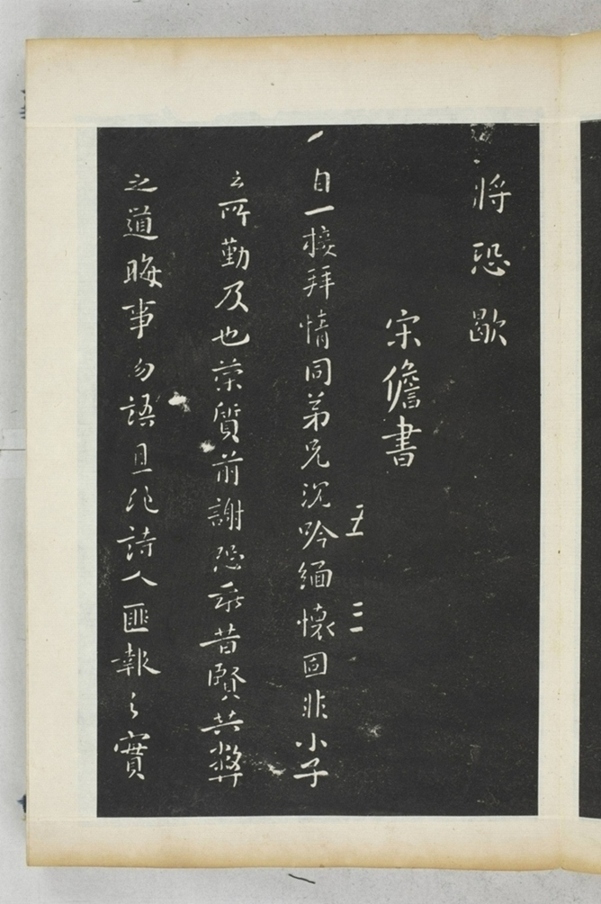 將恐歇
宋儋書
五 三
自一接拜情同弟兄沉吟緬懷固非小子
之所勤及也榮質前謝恐乖昔賢共弊
之道晦事勿語且作詩人匪報之實